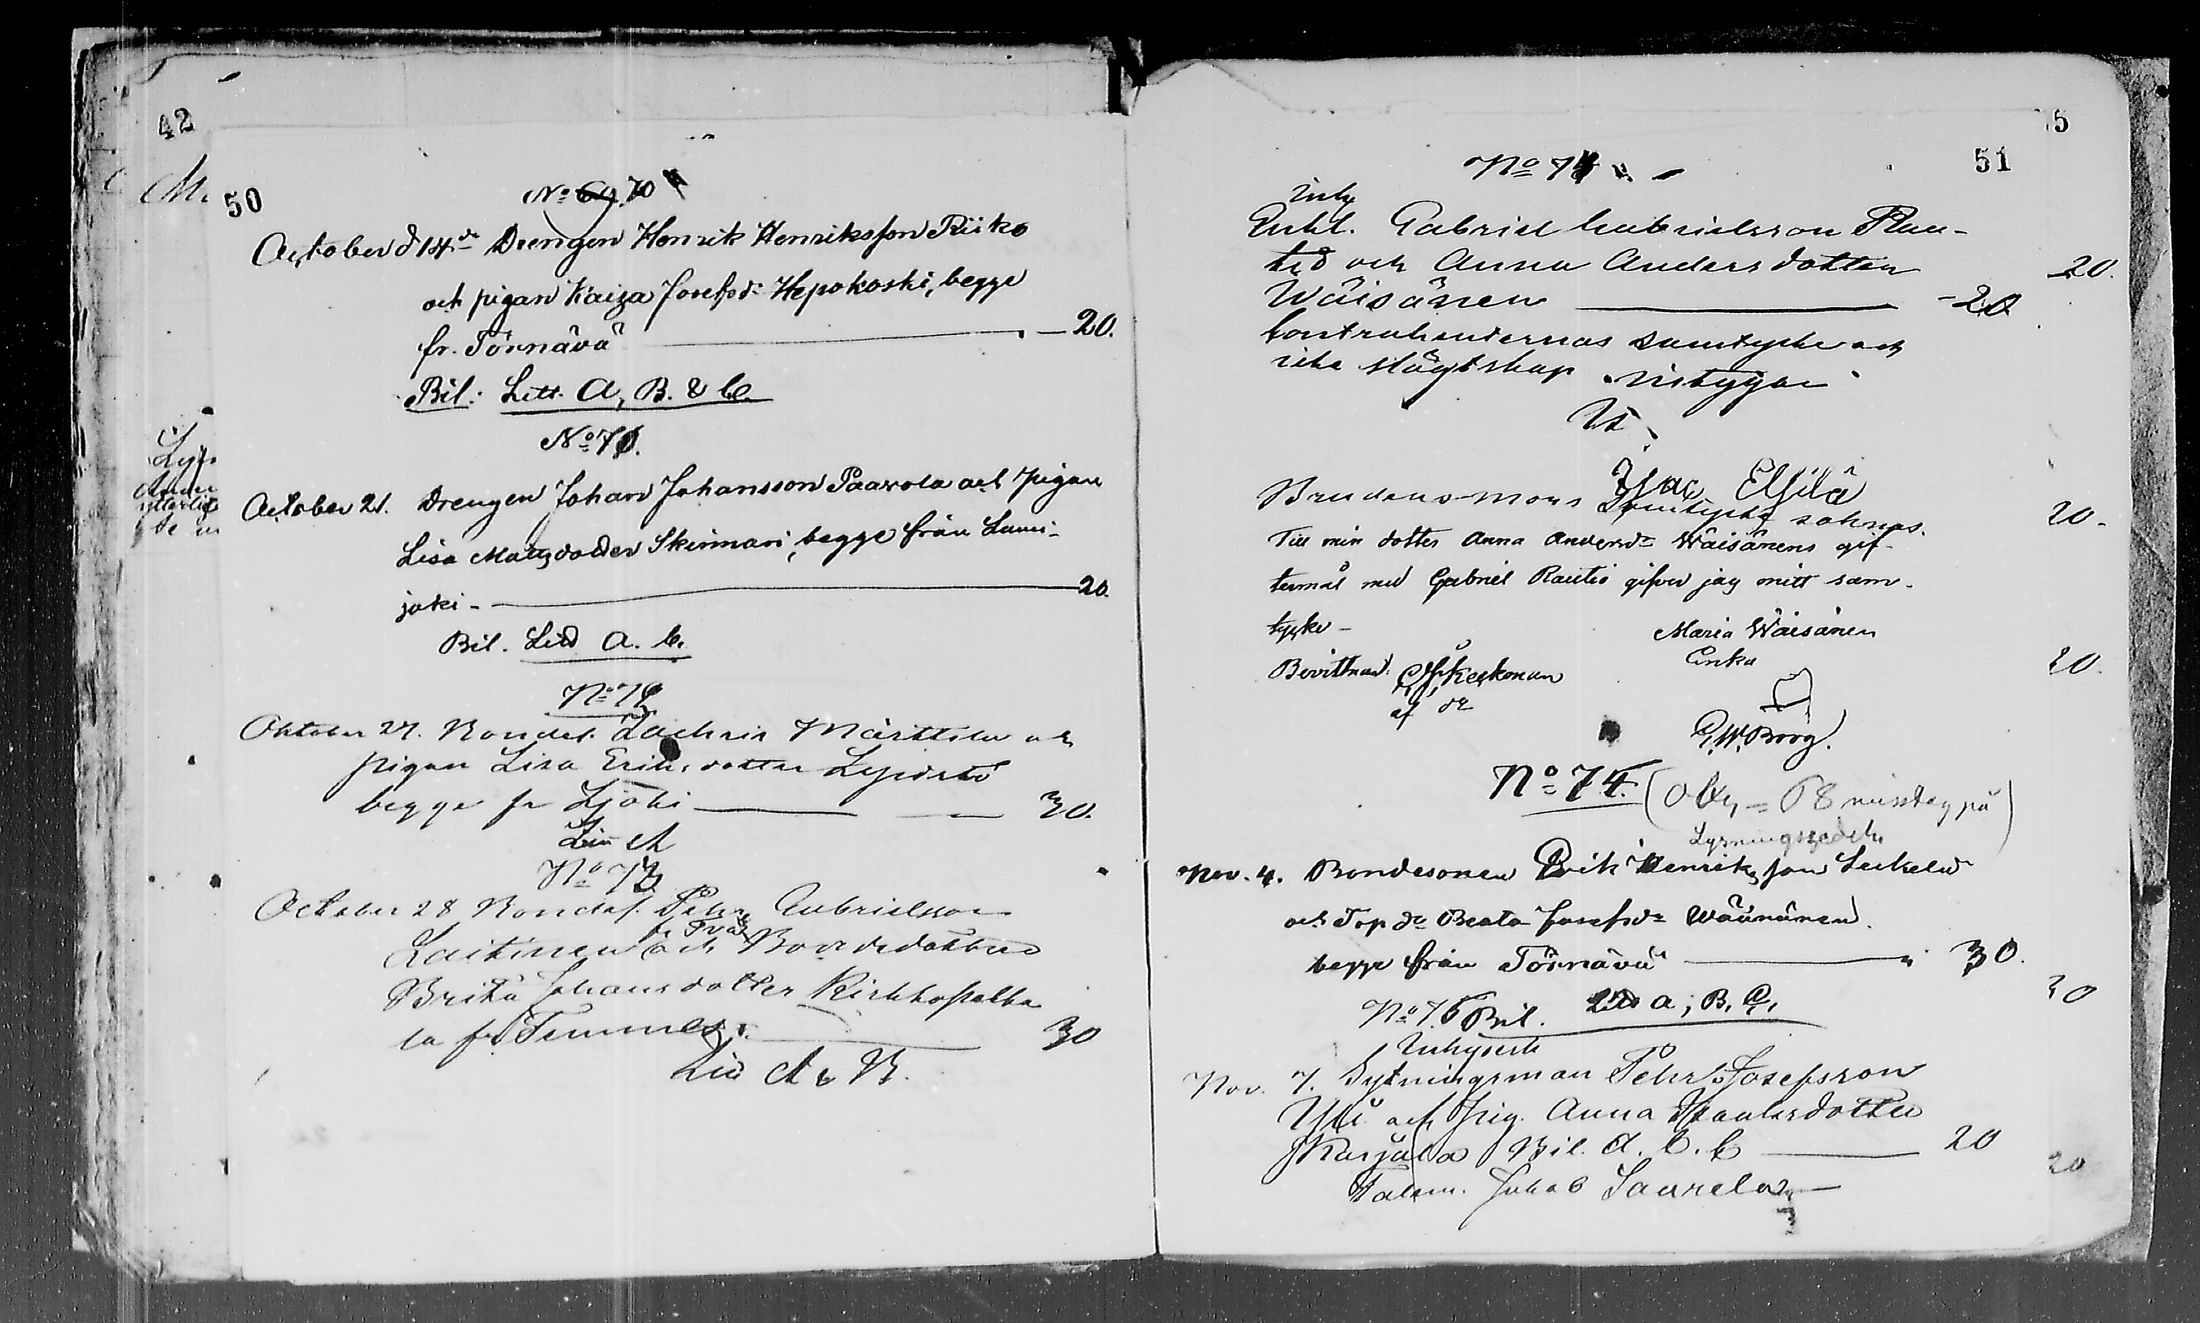 42
M.
50
No 70
October d 14de Drengen Henrik Henriksson Riiko
och pigan Kaiza Josefsdr Hepokoski, begge
fr. Törnävä 20.
Bil: Litt. A, B. & C.
No 71.
October 21. Drengen Johan Johansson Paavola och pigan
Lisa Matzdotter Skinnari, begge från Lumi-
joki - 20.
Bil. Litt A. C.
No 72
Oktober 27. Bondes. Zachris Märttila och
pigan Lisa Eriksdotter
begge fr Ljoki 30.
Litt A
No 73
October 28 Bondes. Pehr Gabrielsson
Laitinen och Bondedottren
Brita Johansdotter
la fr Temmes. 30
Litt A & B.
5
51
No 74
Enkl. Gabriel Gabrielsson Rau-
tio och Anna Andersdotter
Wäisänen 20
20.
Contrahenternas samtycke och
icke slägtskap intygar
Isac Elfilä
Brudens mors samtycke saknas.
20.
Till min dotter Anna Andersdr Wäisänens gif-
termål med Gabriel Rautio gifver jag mitt sam-
tycke - Maria Wäisänen
Enka
Bevittnad: Keskonen
20.
G. W. Borg.
No 74. ( = 68 misstag på
Lysningssedeln )
Nov. 4. Bondesonen Erik Henriksson Leskelä
och Top dr Beata Josefsdr Wäänänen
begge från Törnävä 30.
30
No 75 Bil. Litt A, B, C,
Nov. 7. Sytningsman Pehr Josefsson
Yli och pig. Anna Paulsdotter
Karjala Bil. A. B. C 20
20
Talem. Jakob Saarela